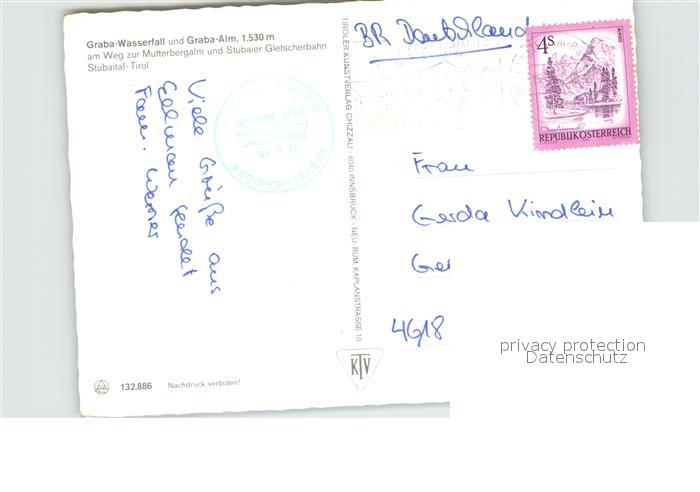 Graba-Wasserfall und Graba-Alm, 1.530 m
am Weg zur Mutterbergalm und Stubaier Gletscherbahn
Stubaital-Tirol
Viele Grüße aus
sendet
Fam. Werner
GLETSCHERKIOSK
TIROLER KUNSTVERLAG CHIZZALI · 6040 INNSBRUCK - NEU-RUM, KAPLANSTRASSE 10
KTV
132.886 Nachdruck verboten!
BR Deutschland
4S
REPUBLIK ÖSTERREICH
Frau
Gerda Kindlein
4618
privacy protection
Datenschutz